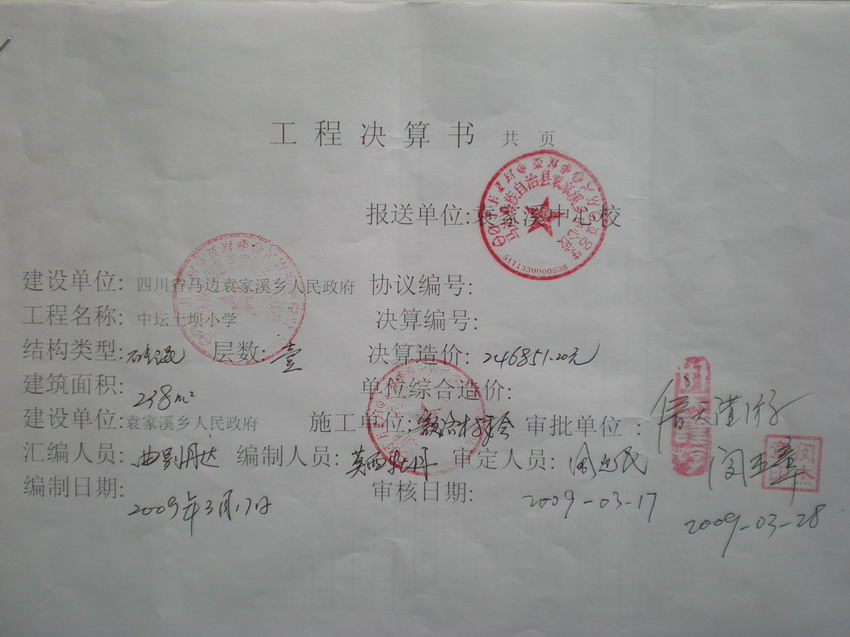 工程决算书 共 页
报送单位:袁家溪中心校
建设单位: 四川省马边袁家溪乡人民政府 协议编号:
工程名称: 中坛土坝小学 决算编号:
结构类型: 砖混 层数: 壹 决算造价: 246851.20元
建筑面积: 238m² 单位综合造价:
建设单位: 袁家溪乡人民政府 施工单位: 审批单位:
汇编人员: 曲别丹达 编制人员: 审定人员:
编制日期: 2009年3月17日 审核日期: 2009-03-17
2009-03-28
5111330000538